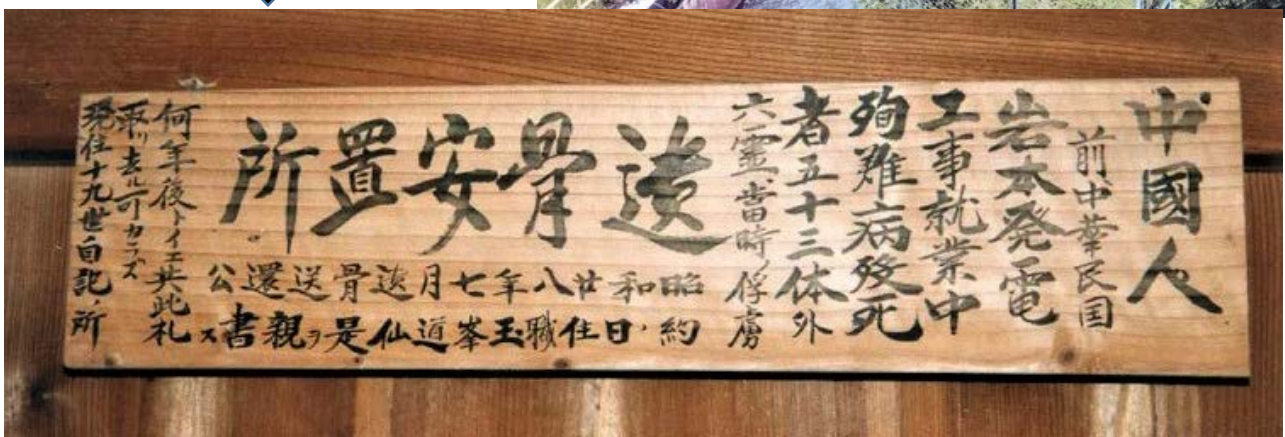 中國人
前中華民国
岩本発電
工事就業中
殉難病歿死
者五十三体外
六霊、當時俘虜
遺骨安置所
昭和廿八年七月遺骨送還公
約、日住職玉峯道仙是ヲ親書ス
何年後トイエ共此札
取リ去ル可カラズ
現住十九世自記所